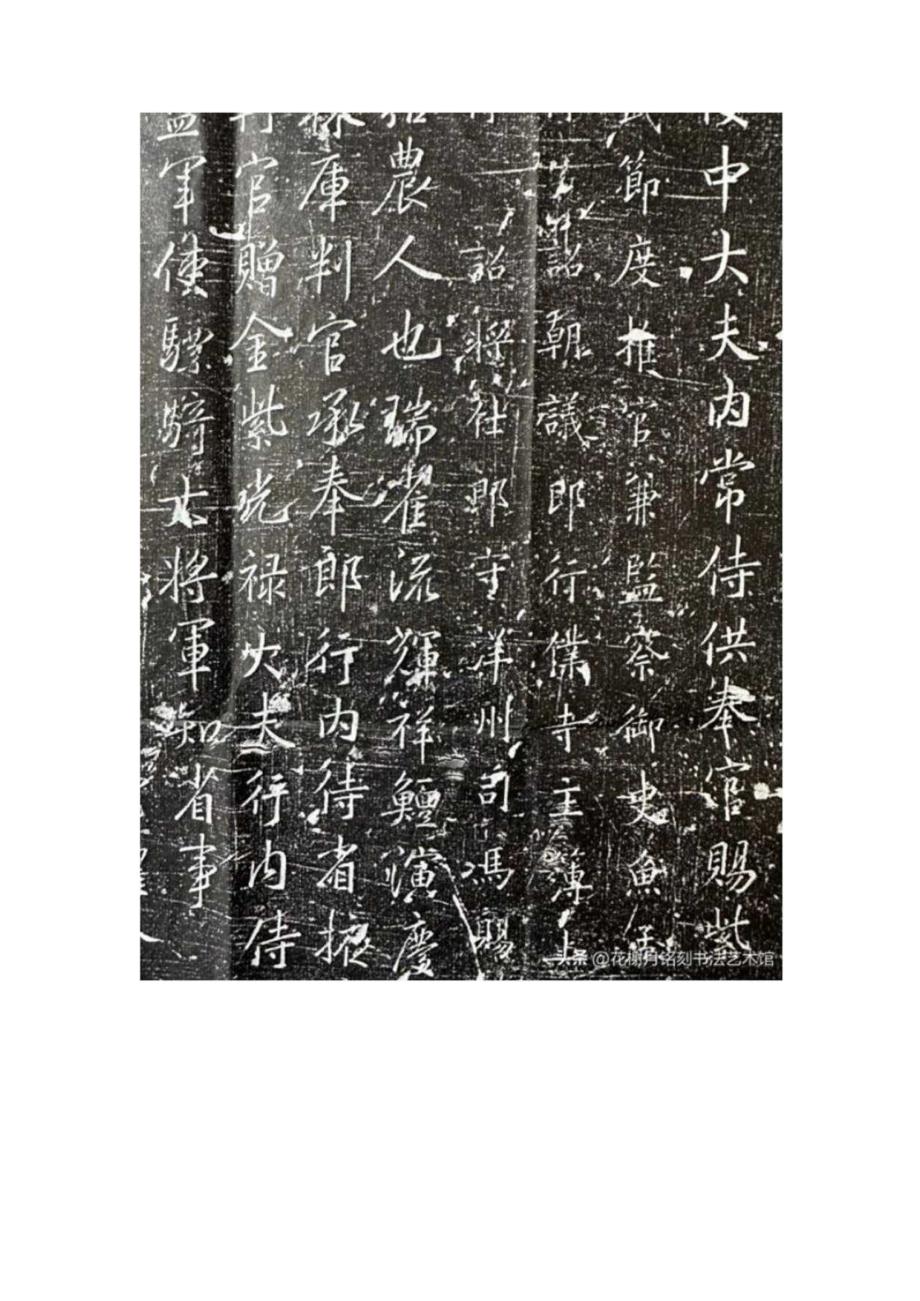 中大夫内常侍供奉官賜紫
節度推官兼監察御史魚
詔朝議郎行僕寺主簿
詔將仕郎守洋州司馮賜
農人也瑞雀流輝祥鱣演慶
庫判官承奉郎行内侍省掖
官贈金紫光禄大夫行内侍
監軍使驃騎大將軍知省事
头条 @花榭月铭刻书法艺术馆